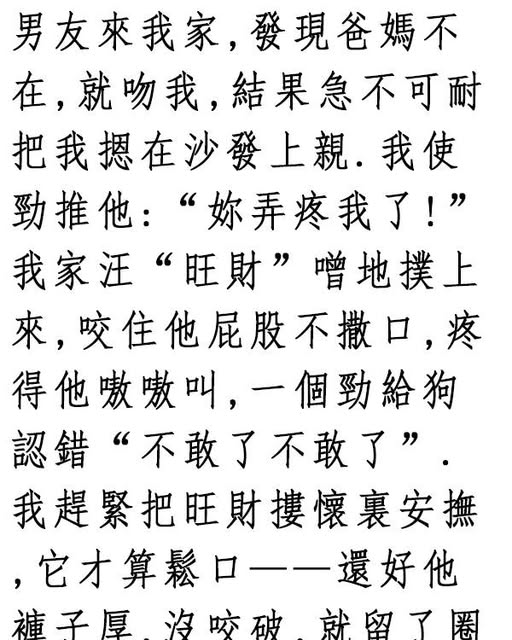 男友來我家,發現爸媽不
在,就吻我,結果急不可耐
把我摁在沙發上親.我使
勁推他:“妳弄疼我了!”
我家汪“旺財”噌地撲上
來,咬住他屁股不撒口,疼
得他嗷嗷叫,一個勁給狗
認錯“不敢了不敢了”.
我趕緊把旺財摟懷裏安撫
,它才算鬆口——還好他
褲子厚,沒咬破,就留了圈